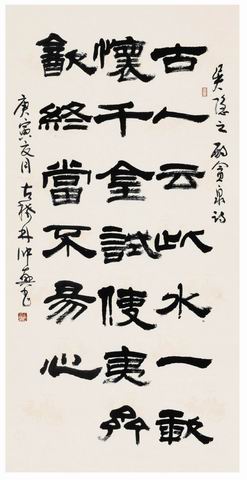 吳隱之酌貪泉詩
古人云此水一歃
懷千金試使夷齊
飲終當不易心
庚寅夏月古杭林仲興書